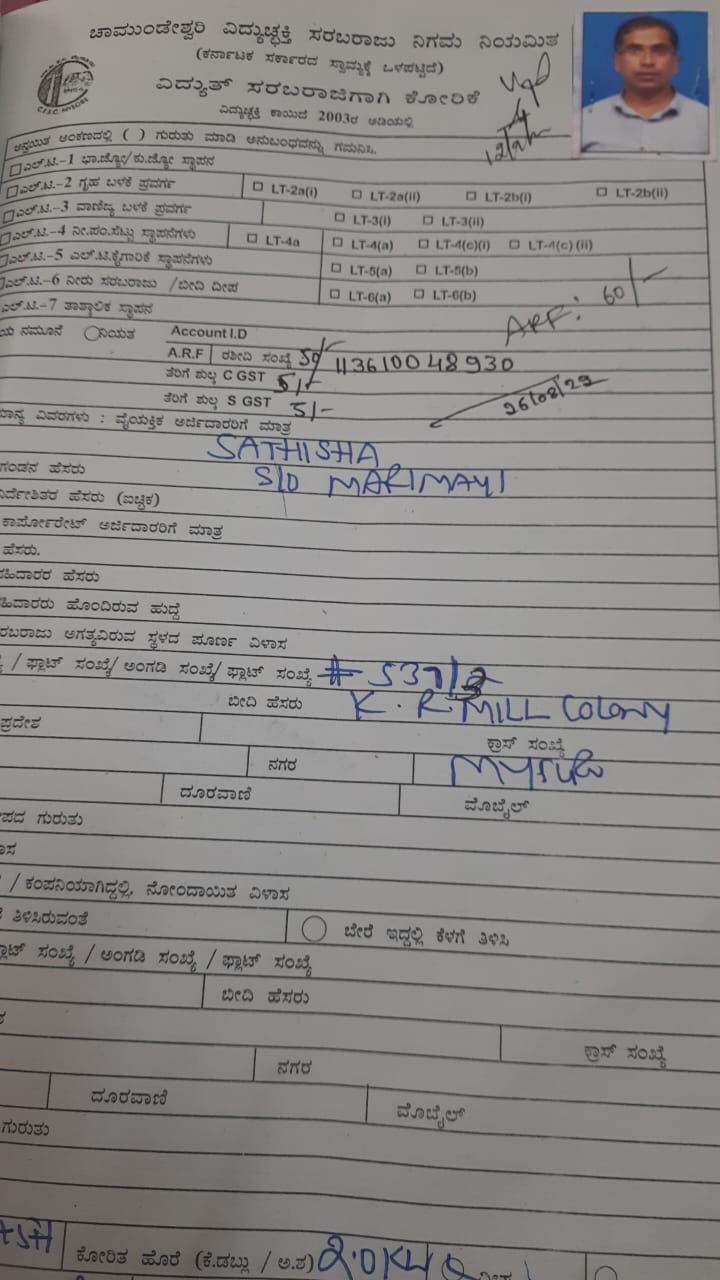 ಚಾಮುಂಡೇಶ್ವರಿ ವಿದ್ಯುಚ್ಛಕ್ತಿ ಸರಬರಾಜು ನಿಗಮ ನಿಯಮಿತ
(ಕರ್ನಾಟಕ ಸರ್ಕಾರದ ಸ್ವಾಮ್ಯಕ್ಕೆ ಒಳಪಟ್ಟಿದೆ)
ವಿದ್ಯುತ್ ಸರಬರಾಜಿಗಾಗಿ ಕೋರಿಕೆ
ವಿದ್ಯುಚ್ಛಕ್ತಿ ಕಾಯಿದೆ 2003ರ ಅಡಿಯಲ್ಲಿ
C.F.S.C. MYSORE
ಅನ್ವಯಿತ ಅಂಕಣದಲ್ಲಿ ( ) ಗುರುತು ಮಾಡಿ ಅನುಬಂಧವನ್ನು ಗಮನಿಸಿ.
ಎಲ್.ಟಿ.-1 ಭಾ.ಜ್ಯೋ/ಕು.ಜ್ಯೋ ಸ್ಥಾಪನ
ಎಲ್.ಟಿ.-2 ಗೃಹ ಬಳಕೆ ಪ್ರವರ್ಗ LT-2a(i) LT-2a(ii) LT-2b(i) LT-2b(ii)
ಎಲ್.ಟಿ.-3 ವಾಣಿಜ್ಯ ಬಳಕೆ ಪ್ರವರ್ಗ LT-3(i) LT-3(ii)
ಎಲ್.ಟಿ.-4 ನೀ.ಪಂ.ಸೆಟ್ಟು ಸ್ಥಾಪನೆಗಳು LT-4a LT-4(a) LT-4(c)(i) LT-4(c)(ii)
ಎಲ್.ಟಿ.-5 ಎಲ್.ಟಿ.ಕೈಗಾರಿಕೆ ಸ್ಥಾಪನೆಗಳು LT-5(a) LT-5(b)
ಎಲ್.ಟಿ.-6 ನೀರು ಸರಬರಾಜು /ಬೀದಿ ದೀಪ LT-6(a) LT-6(b)
ಎಲ್.ಟಿ.-7 ತಾತ್ಕಾಲಿಕ ಸ್ಥಾಪನ
ARF: 60/-
ಯ ನಮೂನೆ ನಿಯತ Account I.D
A.R.F ರಶೀದಿ ಸಂಖ್ಯೆ 50/- 113610048930
ತೆರಿಗೆ ಶುಲ್ಕ C GST 5/-
ತೆರಿಗೆ ಶುಲ್ಕ S GST 5/-
26/08/22
ಮಾನ್ಯ ವಿವರಗಳು : ವೈಯಕ್ತಿಕ ಅರ್ಜಿದಾರರಿಗೆ ಮಾತ್ರ
SATHISHA
ಗಂಡನ ಹೆಸರು S/O MARIMAYI
ನಿರ್ದೇಶಿತರ ಹೆಸರು (ಐಚ್ಛಿಕ)
ಕಾರ್ಪೋರೇಟ್ ಅರ್ಜಿದಾರರಿಗೆ ಮಾತ್ರ
ಹೆಸರು.
ಸಹಿದಾರರ ಹೆಸರು
ಸಹಿದಾರರು ಹೊಂದಿರುವ ಹುದ್ದೆ
ಸರಬರಾಜು ಅಗತ್ಯವಿರುವ ಸ್ಥಳದ ಪೂರ್ಣ ವಿಳಾಸ
/ ಫ್ಲಾಟ್ ಸಂಖ್ಯೆ/ ಅಂಗಡಿ ಸಂಖ್ಯೆ/ ಫ್ಲಾಟ್ ಸಂಖ್ಯೆ # 537/2
ಬೀದಿ ಹೆಸರು K. R MILL COLONY
ಪ್ರದೇಶ ಕ್ರಾಸ್ ಸಂಖ್ಯೆ
ನಗರ Mysuru
ದೂರವಾಣಿ ಮೊಬೈಲ್
ಪದ ಗುರುತು
ಾಸ
/ ಕಂಪನಿಯಾಗಿದ್ದಲ್ಲಿ, ನೋಂದಾಯಿತ ವಿಳಾಸ
ತಿಳಿಸಿರುವಂತೆ ಬೇರೆ ಇದ್ದಲ್ಲಿ ಕೆಳಗೆ ತಿಳಿಸಿ
ಫ್ಲಾಟ್ ಸಂಖ್ಯೆ / ಅಂಗಡಿ ಸಂಖ್ಯೆ / ಫ್ಲಾಟ್ ಸಂಖ್ಯೆ
ಬೀದಿ ಹೆಸರು
ಕ್ರಾಸ್ ಸಂಖ್ಯೆ
ನಗರ
ದೂರವಾಣಿ ಮೊಬೈಲ್
ಗುರುತು
ಕೋರಿತ ಹೊರೆ (ಕೆ.ಡಬ್ಲು / ಅ.ಶ) 2.0KW